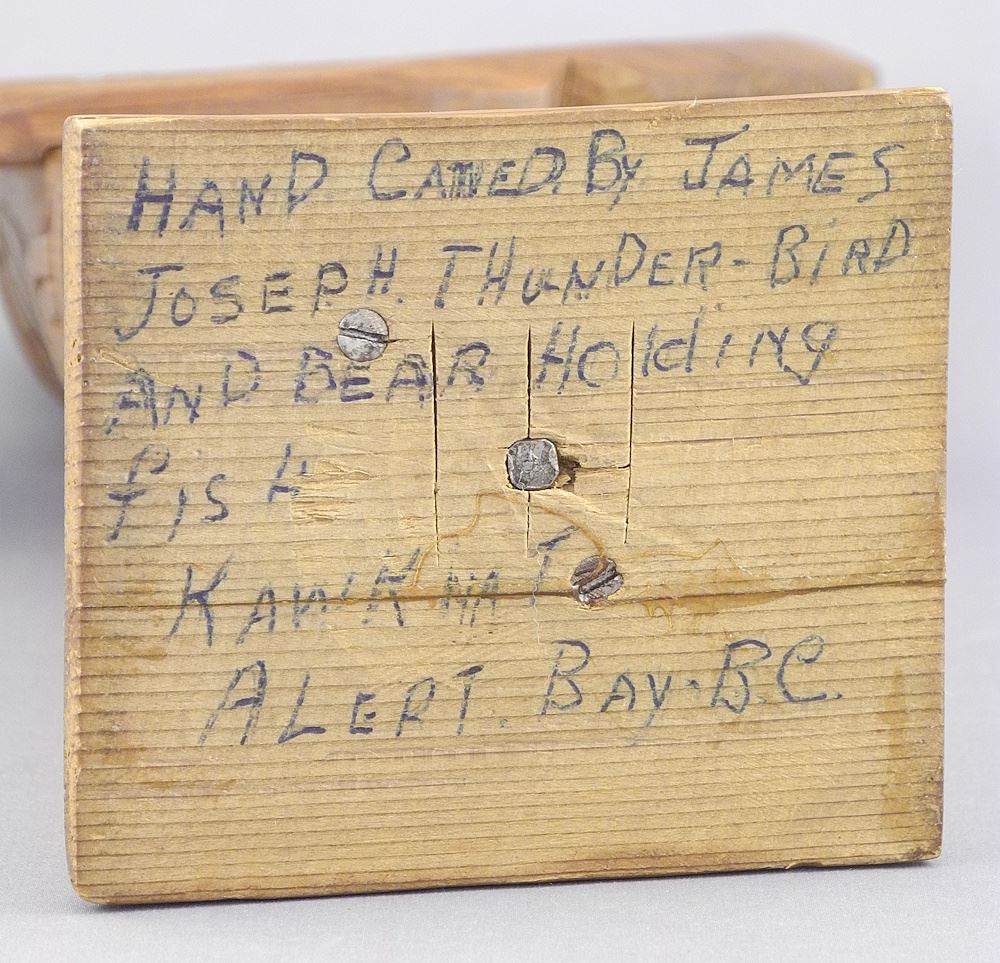 HAND CARVED. By JAMES
JOSEPH. THUNDER-BIRD
AND BEAR Holding
fisH
ALERT. BAy. B.C.